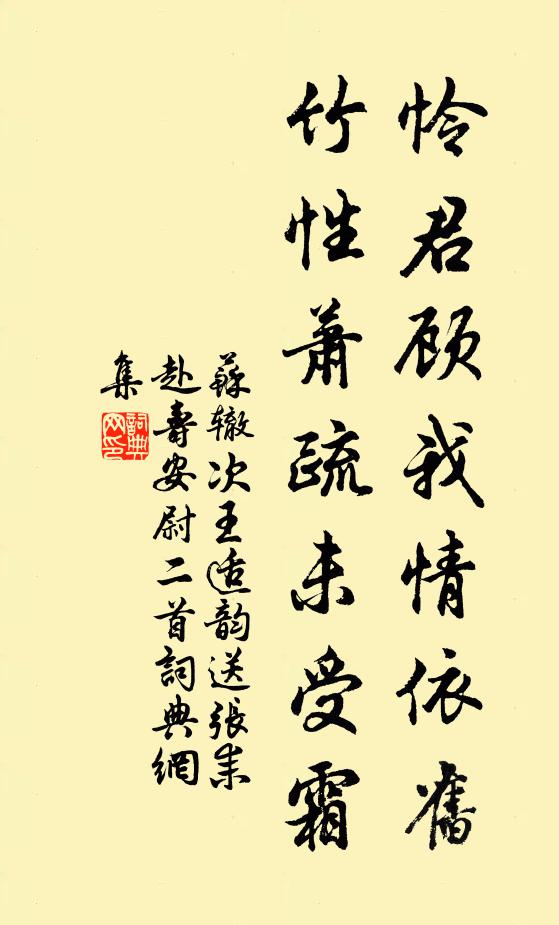 怜君顾我情依旧
竹性萧疏未受霜
苏辙次王适韵送張耒
赴壽安尉二首詞典網
集
詞典
网印